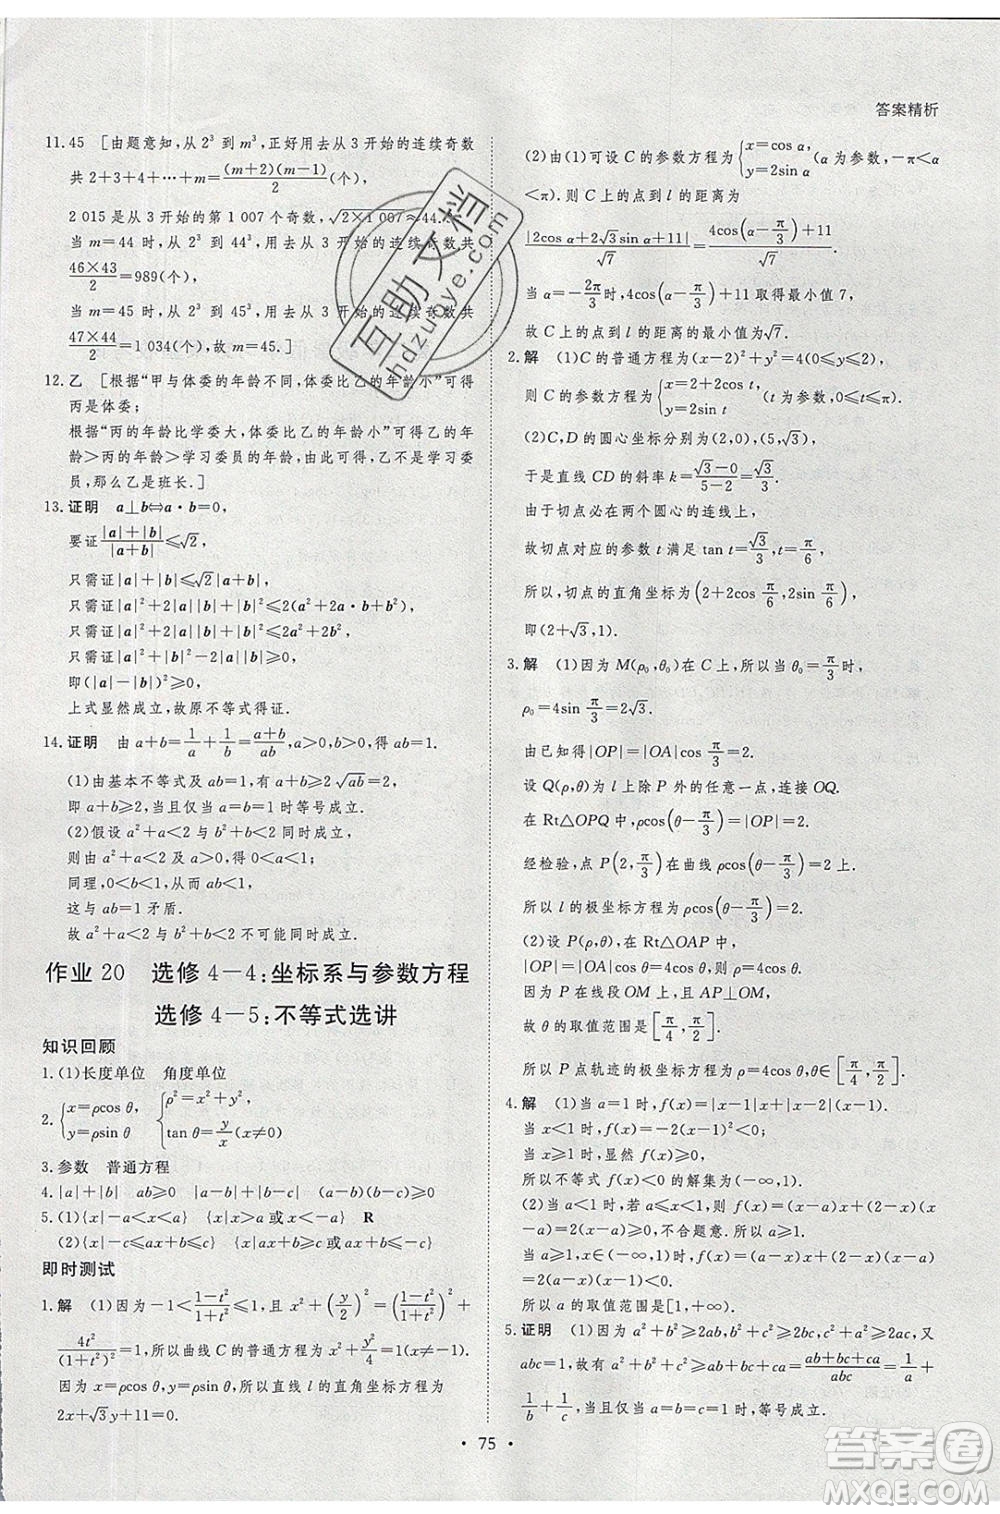 答案精析
11.45 [由题意知,从 2³ 到 m³,正好用从 3 开始的连续奇数
共 2+3+4+…+m=(m+2)(m-1)/2(个),
2 015 是从 3 开始的第 1 007 个奇数,√(2×1 007)≈44.
当 m=44 时,从 2³ 到 44³,用从 3 开始的连续奇数共
46×43/2=989(个),
当 m=45 时,从 2³ 到 45³,用从 3 开始的连续奇数共
47×44/2=1 034(个),故 m=45.]
12.乙 [根据“甲与体委的年龄不同,体委比乙年龄小”可得
丙是体委;
根据“丙的年龄比学委大,体委比乙年龄小”可得乙的年
龄>丙的年龄>学习委员的年龄,由此可得,乙不是学习委
员,那么乙是班长.]
13.证明 a⊥b⇔a·b=0,
要证(|a|+|b|)/|a+b|≤√2,
只需证|a|+|b|≤√2|a+b|,
只需证|a|²+2|a||b|+|b|²≤2(a²+2a·b+b²),
只需证|a|²+2|a||b|+|b|²≤2a²+2b²,
只需证|a|²+|b|²-2|a||b|≥0,
即(|a|-|b|)²≥0,
上式显然成立,故原不等式得证.
14.证明 由 a+b=1/a+1/b=(a+b)/ab,a>0,b>0,得 ab=1.
(1)由基本不等式及 ab=1,有 a+b≥2√ab=2,
即 a+b≥2,当且仅当 a=b=1 时等号成立.
(2)假设 a²+a<2 与 b²+b<2 同时成立,
则由 a²+a<2 及 a>0,得 0<a<1;
同理,0<b<1,从而 ab<1,
这与 ab=1 矛盾.
故 a²+a<2 与 b²+b<2 不可能同时成立.
作业 20 选修 4-4:坐标系与参数方程
选修 4-5:不等式选讲
知识回顾
1.(1)长度单位 角度单位
2.{x=ρcos θ, y=ρsin θ {ρ²=x²+y², tan θ=y/x(x≠0)
3.参数 普通方程
4.|a|+|b| ab≥0 |a-b|+|b-c| (a-b)(b-c)≥0
5.(1){x|-a<x<a} {x|x>a或x<-a} R
(2){x|-c≤ax+b≤c} {x|ax+b≥c或ax+b≤-c}
即时测试
1.解 (1)因为-1<(1-t²)/(1+t²)≤1,且 x²+(y/2)²=((1-t²)/(1+t²))²+
4t²/(1+t²)²=1,所以曲线 C 的普通方程为 x²+y²/4=1(x≠-1).
因为 x=ρcos θ,y=ρsin θ,所以直线 l 的直角坐标方程为
2x+√3y+11=0.
(2)由(1)可设 C 的参数方程为{x=cos α, y=2sin α(α 为参数,-π<α
<π).则 C 上的点到 l 的距离为
|2cos α+2√3sin α+11|/√7=(4cos(α-π/3)+11)/√7.
当 α=-2π/3时,4cos(α-π/3)+11 取得最小值 7,
故 C 上的点到 l 的距离的最小值为√7.
2.解 (1)C 的普通方程为(x-2)²+y²=4(0≤y≤2).
则 C 的参数方程为{x=2+2cos t, y=2sin t (t 为参数,0≤t≤π).
(2)C,D 的圆心坐标分别为(2,0),(5,√3),
于是直线 CD 的斜率 k=(√3-0)/(5-2)=√3/3.
由于切点必在两个圆心的连线上,
故切点对应的参数 t 满足 tan t=√3/3,t=π/6,
所以,切点的直角坐标为(2+2cosπ/6,2sinπ/6),
即(2+√3,1).
3.解 (1)因为 M(ρ₀,θ₀)在 C 上,所以当 θ₀=π/3时,
ρ₀=4sin π/3=2√3.
由已知得|OP|=|OA|cos π/3=2.
设 Q(ρ,θ)为 l 上除 P 外的任意一点,连接 OQ.
在 Rt△OPQ 中,ρcos(θ-π/3)=|OP|=2.
经检验,点 P(2,π/3)在曲线 ρcos(θ-π/3)=2 上.
所以 l 的极坐标方程为 ρcos(θ-π/3)=2.
(2)设 P(ρ,θ),在 Rt△OAP 中,
|OP|=|OA|cos θ=4cos θ,即 ρ=4cos θ.
因为 P 在线段 OM 上,且 AP⊥OM,
故 θ 的取值范围是[π/4,π/2].
所以 P 点轨迹的极坐标方程为 ρ=4cos θ,θ∈[π/4,π/2].
4.解 (1)当 a=1 时,f(x)=|x-1|x+|x-2|(x-1).
当 x<1 时,f(x)=-2(x-1)²<0;
当 x≥1 时,显然 f(x)≥0.
所以,不等式 f(x)<0 的解集为(-∞,1).
(2)当 a<1 时,若 a≤x<1,则 f(x)=(x-a)x+(2-x)(x
-a)=2(x-a)≥0,不合题意,所以 a≥1,
当 a≥1,x∈(-∞,1)时,f(x)=(a-x)x+(2-x)(x-a)
=2(a-x)(x-1)<0.
所以 a 的取值范围是[1,+∞).
5.证明 (1)因为 a²+b²≥2ab,b²+c²≥2bc,c²+a²≥2ac,又
abc=1,故有 a²+b²+c²≥ab+bc+ca=(ab+bc+ca)/abc=1/a+
1/b+1/c,当且仅当 a=b=c=1 时,等号成立.
• 75 •
互助文档
hdzuoye.com
答案圈
MXQE.COM